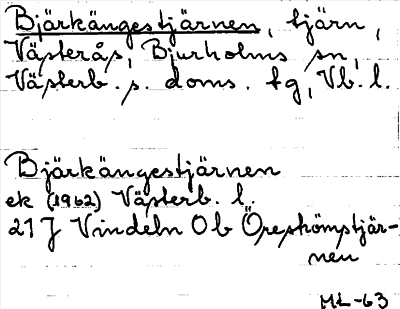 Bjärkängestjärnen, tjärn,
Västerås, Bjurholms sn,
Västerb. s. doms. tg, Vb. l.
Bjärkängestjärnen
ek (1962) Västerb. l.
21 J Vindeln 0 b Öreströmstjär-
nen
ML-63